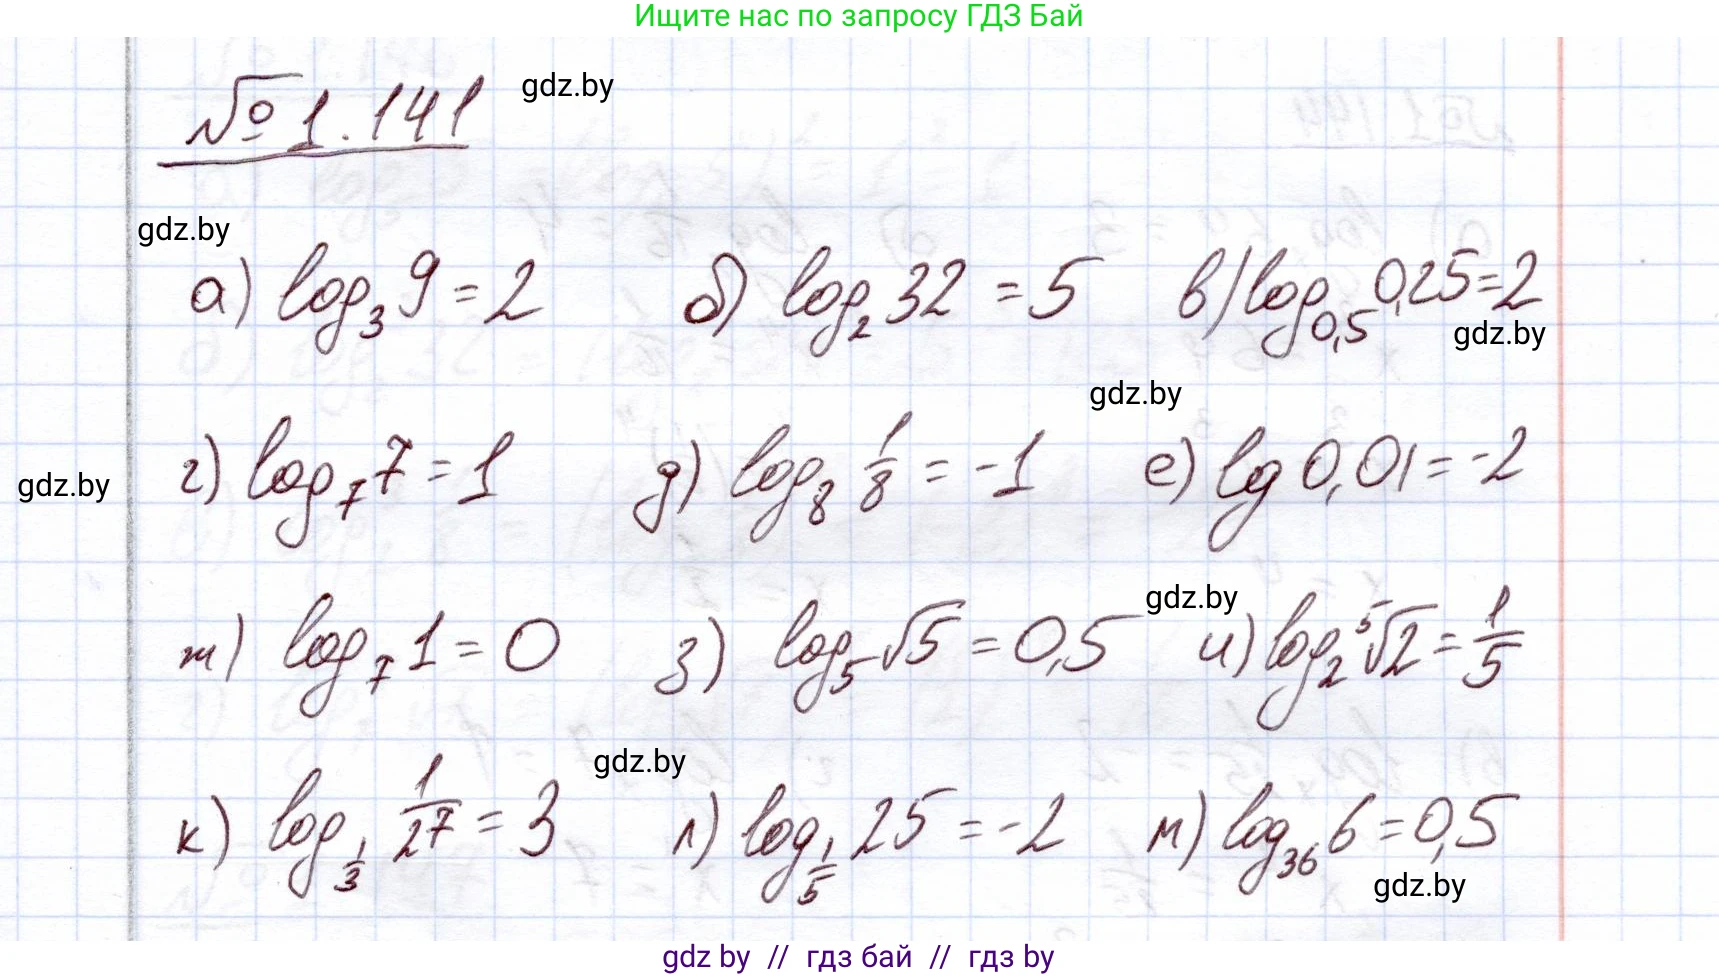 Ищите нас по запросу ГДЗ Бай
№ 1.141 gdz.by
gdz.by
а) log₃ 9 = 2 б) log₂ 32 = 5 в) log₀,₅ 0,25 = 2
gdz.by
gdz.by
г) log₇ 7 = 1 д) log₈ 1/8 = -1 е) lg 0,01 = -2
gdz.by
gdz.by
ж) log₇ 1 = 0 з) log₅ √5 = 0,5 и) log₂ ⁵√2 = 1/5
gdz.by
к) log_{1/3} 1/27 = 3 л) log_{1/5} 25 = -2 м) log₃₆ 6 = 0,5
gdz.by
gdz by // гдз бай // гдз by